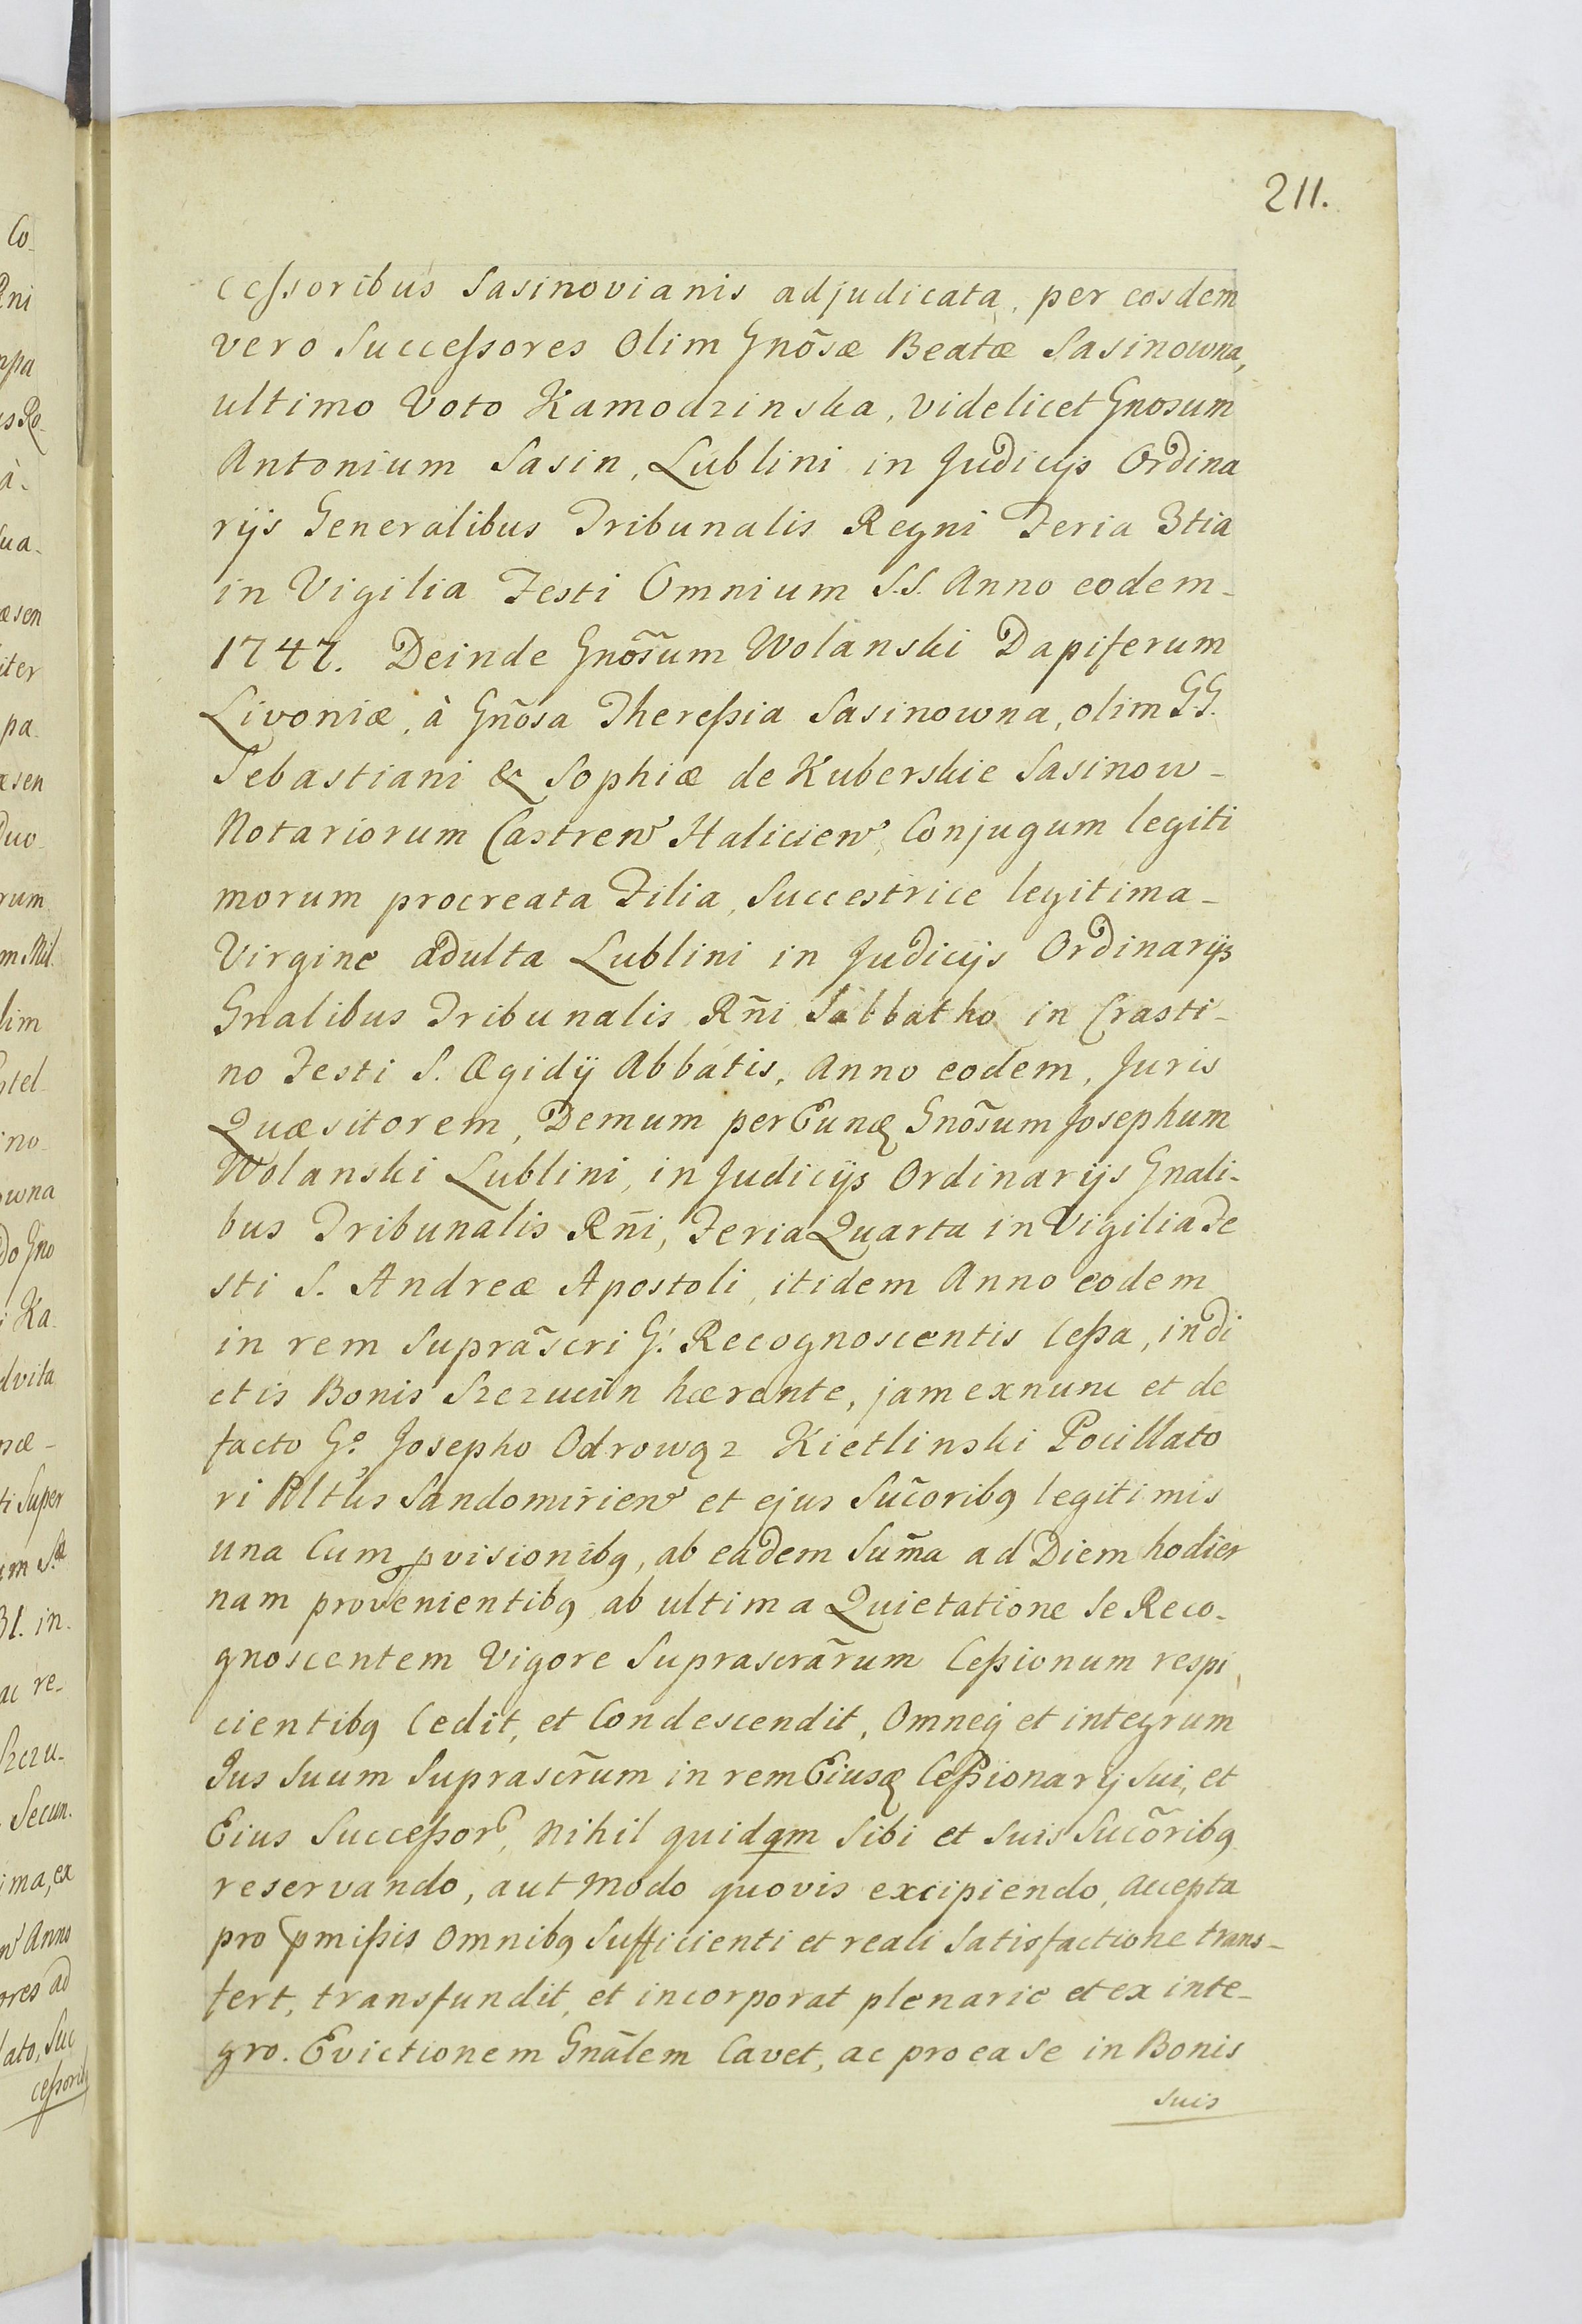 211.
cessoribus Sasinovianis adjudicata, per eosdem
vero Successores Olim Gnõsæ Beatæ Sasinowna,
ultimo Voto Kamodzinska, videlicet Gnosum
Antonium Sasin, Lublini in Judicijs Ordina
rijs Generalibus Tribunalis Regni Feria 3tia
in Vigilia Festi Omnium S.S. Anno eodem-
1747. Deinde Gnõsum Wolanski Dapiferum
Livoniæ, à Gñosa Theressia Sasinowna, olim G.G.
Sebastiani & Sophiæ de Kuberskie Sasinow-
Notariorum Castren Halicien, Conjugum legiti
morum procreata Filia, Succestrice legitima-
Virgine adulta Lublini in Judicijs Ordinarijs
Gnalibus Tribunalis Rñi Sabbatho in Crasti-
no Festi S. Ægidij Abbatis, Anno eodem, Juris
Quæsitorem, Demum per Eunq Gnõsum Josephum
Wolanski Lublini, in Judicijs Ordinarijs Gnali-
bus Tribunalis Rñi, Feria Quarta in Vigilia Fe
sti S. Andreæ Apostoli, itidem Anno eodem
in rem Suprãscri G. Recognoscentis Cessa, in di
ctis Bonis Szczucin hærente, jam ex nunc et de
facto Go. Josepho Odrowąz Kietlinski Pocillato
ri Pltus Sandomirien et ejus Sucõribq legitimis
una Cum pvisionibq, ab eadem Sum̃a ad Diem hodier
nam provenientibq ab ultima Quietatione Se Reco-
gnoscentem Vigore Suprascrãrum Cessionum respi
cientibq Cedit, et Condescendit, Omneq et integrum
Jus Suum Suprascr̃um in rem Eiusq Cessionarij Sui, et
Eius Successor, Nihil quidqm Sibi et Suis Sucõribq
reservando, aut Modo quovis excipiendo, accepta
pro pmissis Omnibq Sufficienti et reali Satisfactione trans-
fert, transfundit, et incorporat plenarie et ex inte-
gro. Evictionem Gnãlem Cavet, ac pro ea Se in Bonis
Suis